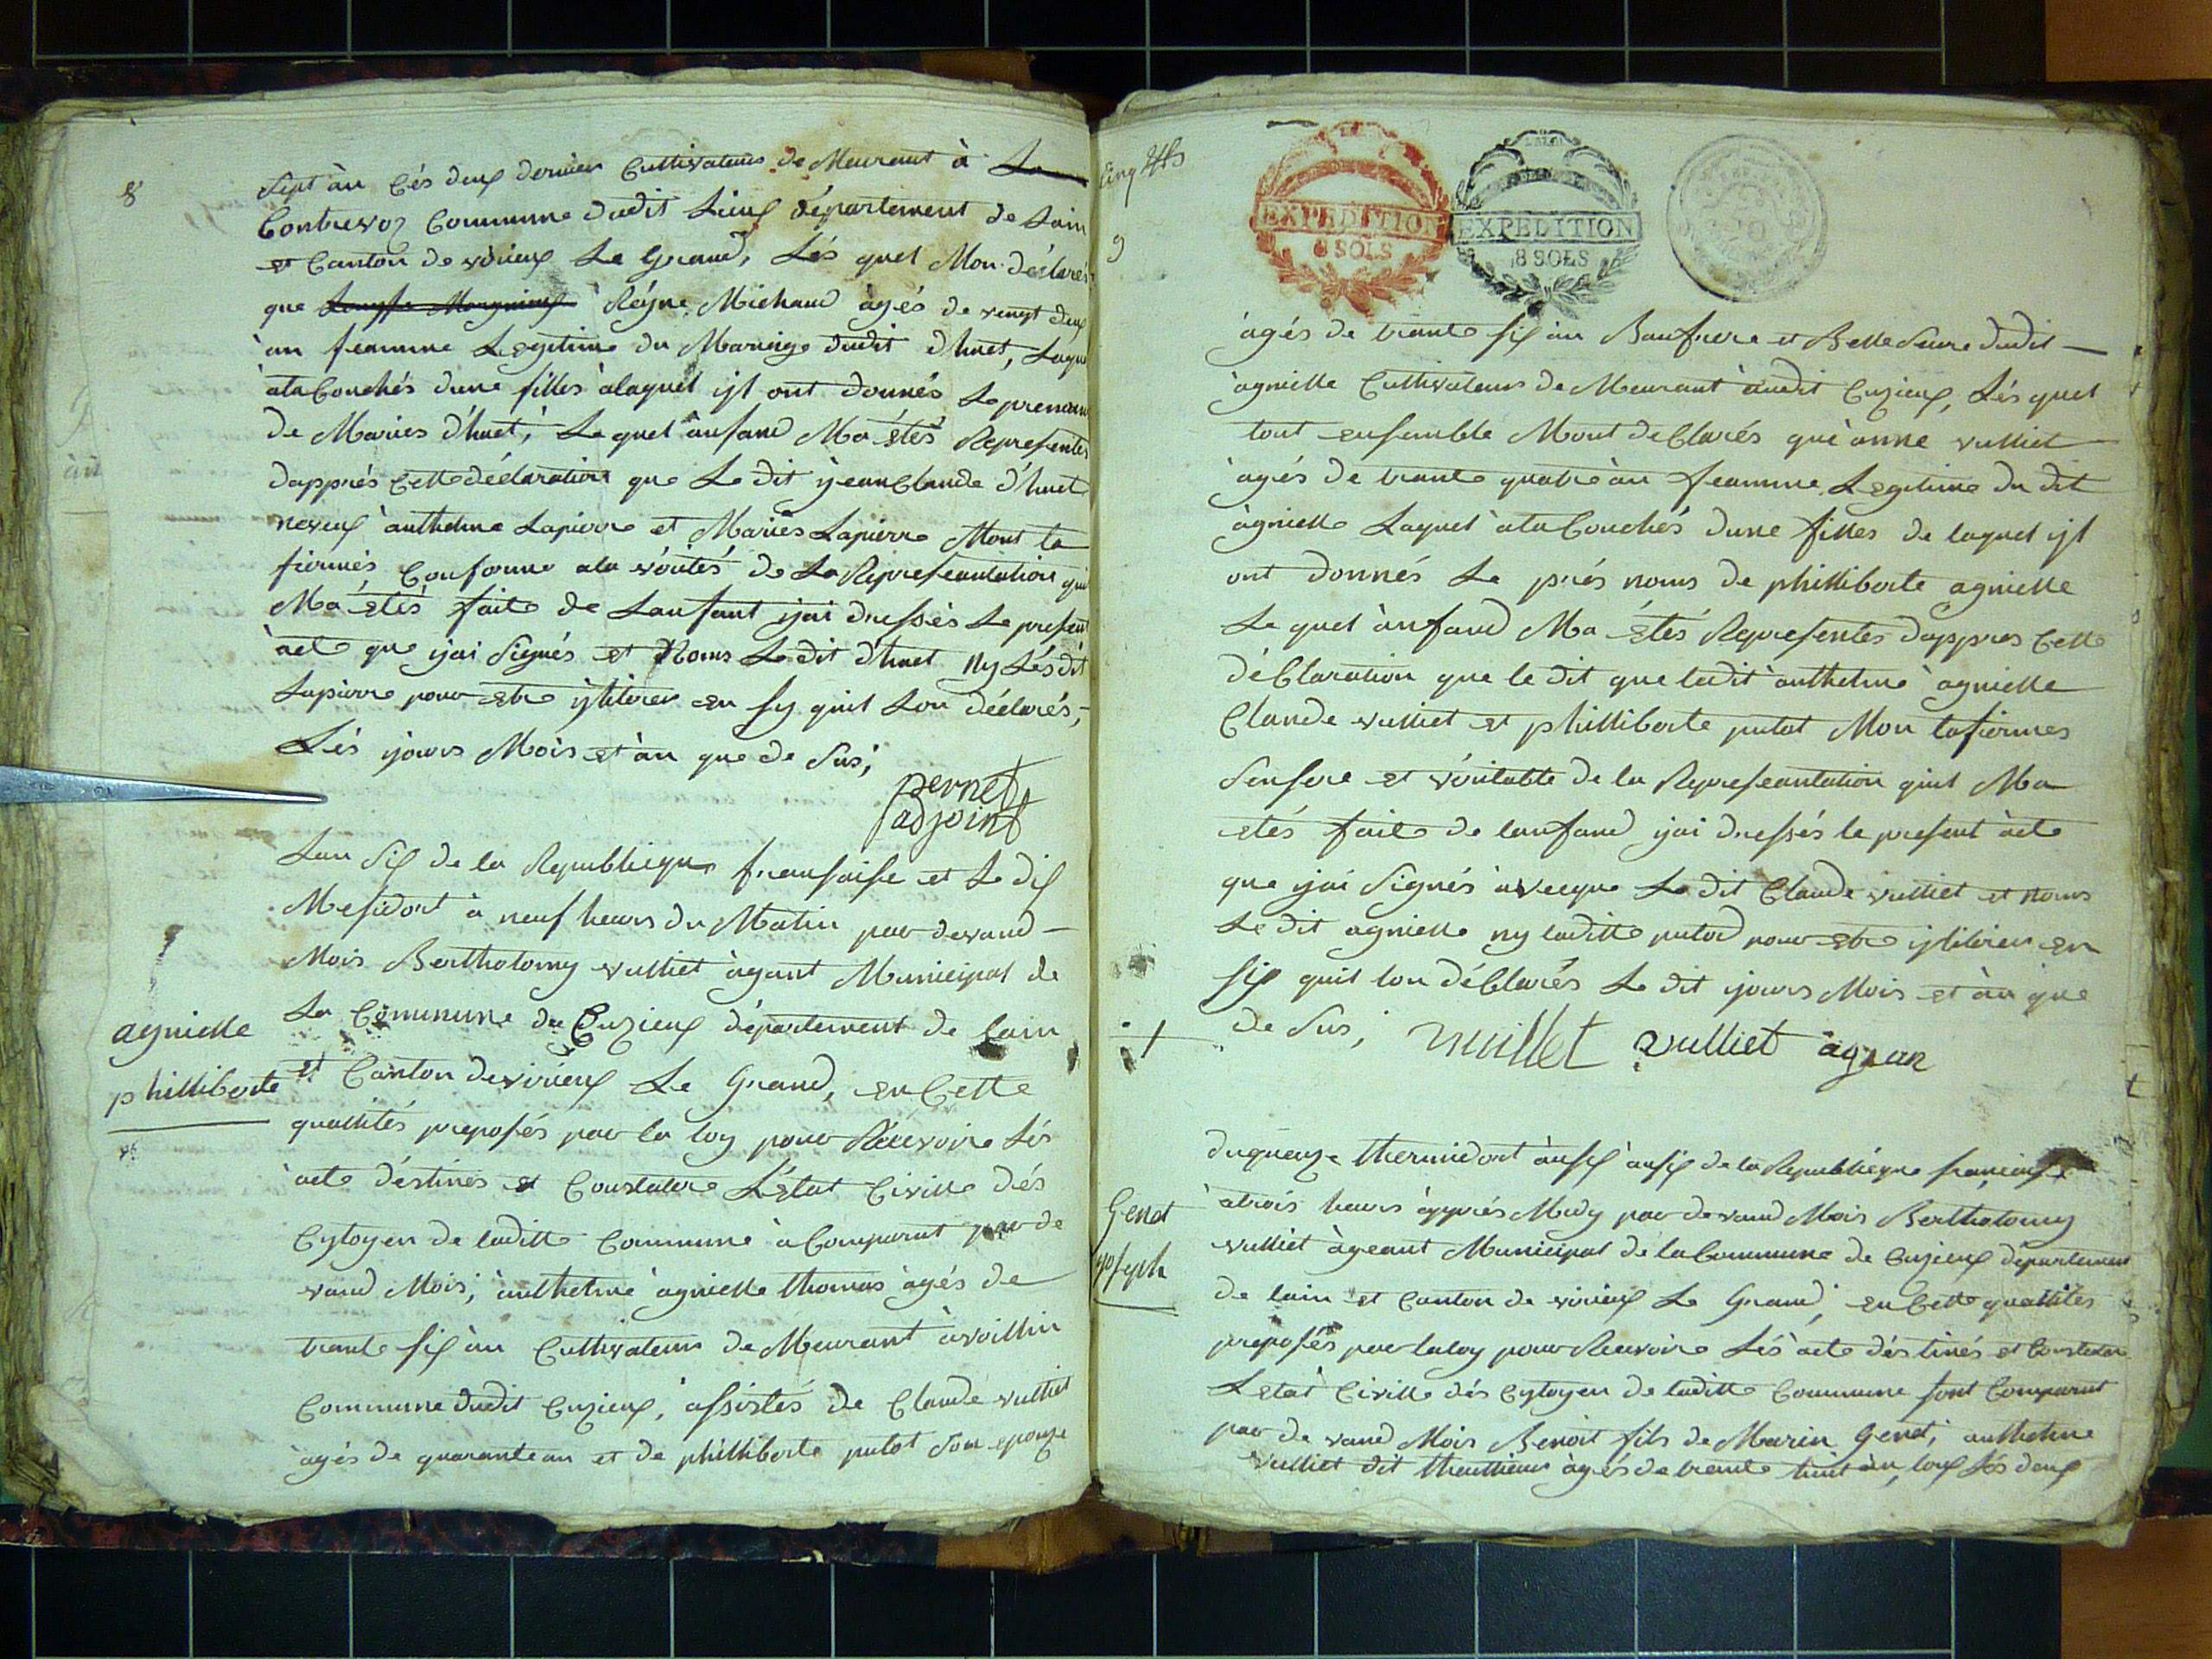 8
Sept àn Cés deux dernier Cultivateurs de Meurant à La
Contrevoz Commune dudit Lieux département de Lain
et Canton de virieux Le Grand, Lés quel Mon déclarés
que Reÿne Michaud àgés de vengt deux
àn feamme Legitime du Mariage dudit d'huet, Laque
ata Couchés dune filles àlaquel ist ont donnés Le prenom
de Maries d'huet, Le quel ànfand Ma étés Representés
dapprés Cette déclaration que Le dit ÿean Claude d'huet
neveux anthelme Lapierre et Mariés Lapierre Mont la
firmés Conforme ala véritès de La Represeantation qui
Ma étés faite de Lanfant ijai dressés Le present
àcte que ijai Signés et Nomx Le dit d'huet ny Lés dit
Lapierre pour etre ÿlitérer en sy quil Lon déclarés,
Lés ijours Mois et àn que de Sus;
pernet
adjoint
Lan Six de la Republieque fransaise et Le dix
Mesidort à neuf heurs du Matin par devand
Mois Bertholomy vulliet àgant Municipal de
La Commune de Cuzieux département de Lain
et Canton de virieux Le Grand, en Cette
quallités preposés par la loy pour Recevoire Lés
àcte déstinés et Constatere L'état Civille dés
Cytoyen de laditte Commune à Comparut par de
vand Mois, anthelme àgnielle thomas àgés de
trante six àn Cultivateur de Meurant àvoillin
Commune dudit Cuzieux, àssistés de Claude vulliet
àgés de quarante an et de philliberte putot Son epouze
agnielle
philliberte
Cinq
9
EXPEDITION
8 SOLS
EXPEDITION
8 SOLS
àgés de trante six àn Baufrere et Belle Seure dudit
àgnielle Cultivateurs de Meurant àudit Cuzieux, Lés quel
tout ensemble Mont déClarés qué anne vulliet
àgés de trante quatre àn feamme Legitime du dit
àgnielle Laquel ata Couchés dune filles de laquel ist
ont donnés Le prés noms de philliberte agnielle
Le quel ànfand Ma étés Representés dappres Cette
déClaration que le dit que ledit anthelme àgnielle
Claude vulliet et philliberte putot Mon lafirmes
Sensere et véritable de la Represeantation quil Ma
etés faite de lanfand ijai dressés le present àcte
que ijai Signés àvecque Le dit Claude vulliet et noms
Le dit agnielle ny laditte putod pour etre ÿlitérer en
sis quil lon déClarés Le dit ijours Mois et àn que
de Sus, vuillet vulliet àgean
duqueinze thermidort àn six de la Republieque franceaise
àtrois heurs àpprés Midy par devand Mois Bertholomy
vulliet àgeant Municipal de la Commune de Cuzieux département
de lain et Canton de virieux Le Grand, en Cette quallités
preposés par la loy pour Recevoire Lés àcte déstinés et Constater
Létat Civille dés Cytoyen de laditte Commune sont Comparut
par de vand Mois Benoit fils de Marin Genet, anthelme
Vulliet dit àgés de trante huit àn, tous Lés deux
Genet
joseph